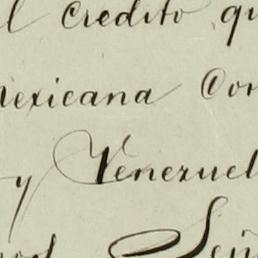 l credito qu
exicana Con
y Venezuel
Señ